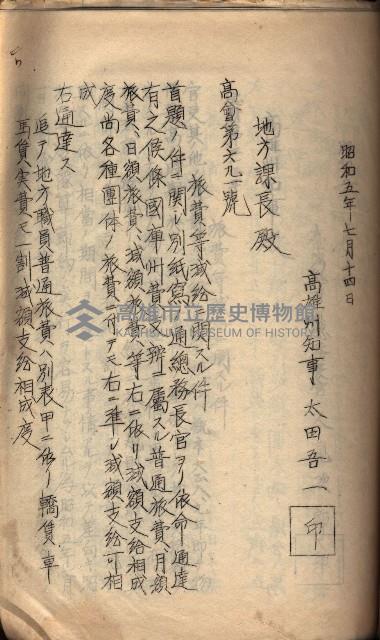 昭和五年七月十四日
高雄州知事 太田吾一
印
地方課長殿
高會第六九一號
旅費等減給ニ關スル件
首題ノ件ニ關シ別紙寫ノ通總務長官ヨリ依命通達
有之候條國庫州費ノ辨ニ屬スル普通旅費、月額
旅費、日額旅費、減額旅費等右ニ依リ減額支給相成
度尚各種團体ノ旅費ニ付テモ右ニ準シ減額支給可相
成
右通達ス
追テ地方職員普通旅費ハ別表甲ニ依リ轎賃車
馬賃実費モ一割ハ減額支給相成度
高雄市立歷史博物館
KAOHSIUNG MUSEUM OF HISTORY